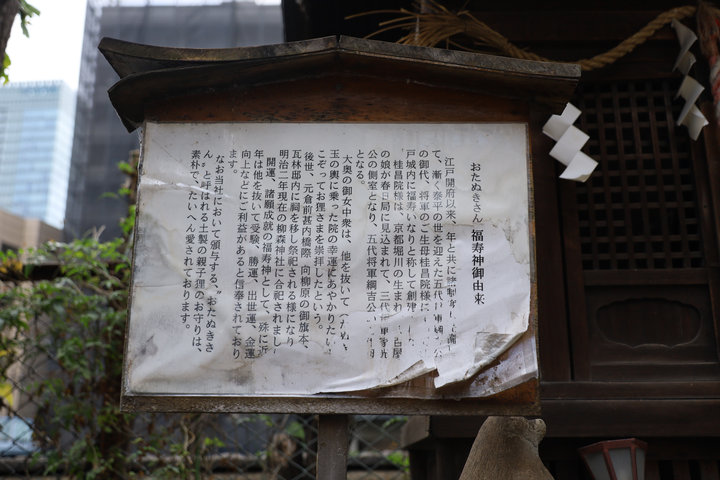 おたぬきさん 福寿神御由来
江戸開府以来、年と共に
て、漸く泰平の世を迎えた五代
の御代、将軍のご生母桂昌院様に
戸城内に福寿いなりと称して創建
桂昌院様は、京都堀川の生まれ
の娘が春日局に見込まれて、三代
公の側室となり、五代将軍綱吉公
となる。
大奥の御女中衆は、他を抜いて（たぬき
玉の輿に乗った院の幸運にあやかりたい
こぞってお狸さまを崇拝したという。
後世、元倉前甚内橋際、向柳原の御旗本、
瓦林邸内に祠を移し祭祀される様になり
明治二年現在の柳森神社に合祀されまし
開運、諸願成就の福寿神として、殊に近
年は他を抜いて受験、勝運、出世運、金運
向上などにご利益があると信奉されており
ます。
なお当社において頒与する、〝おたぬきさ
ん〟と呼ばれる土製の親子狸のお守りは、
素朴で、たいへん愛されております。